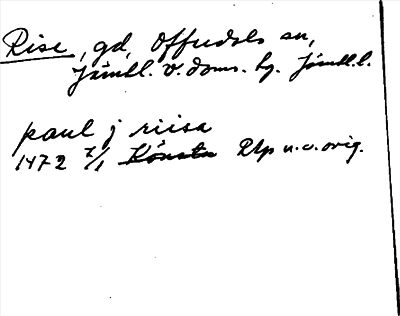 Rise, gd, Offerdals sn,
Jämtl. v. doms. hg. Jämtl. l.
paul j riisa
1472 7/1 RAp n.v. orig.